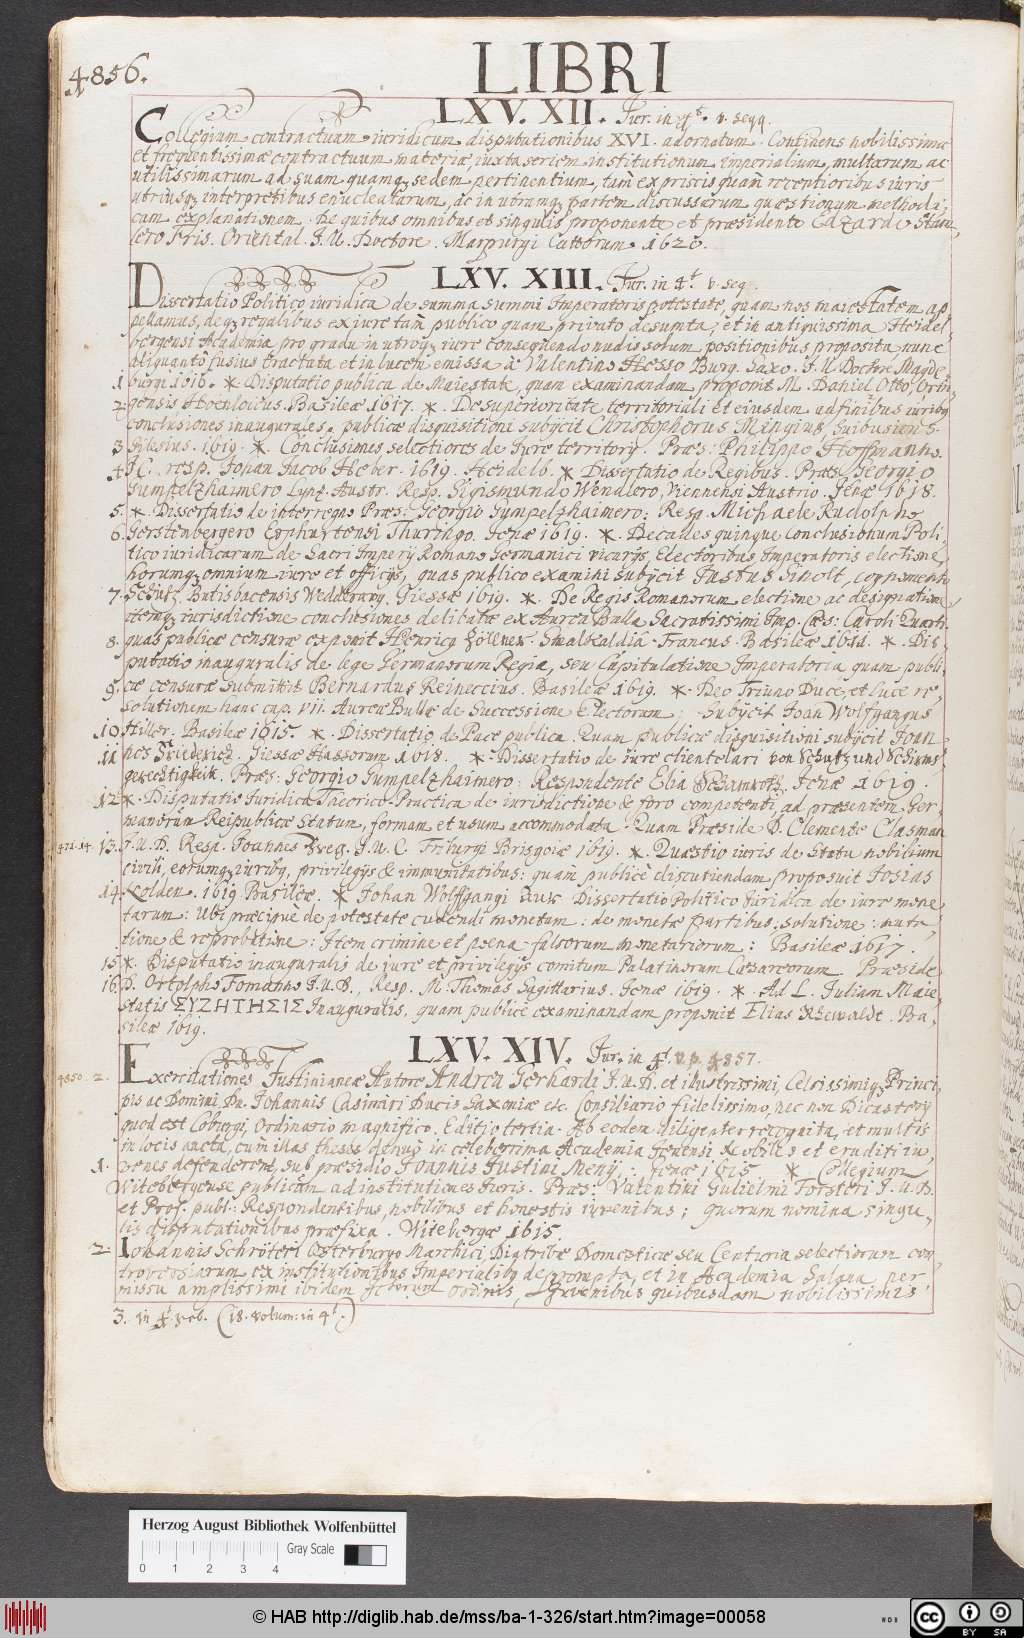 4856.
LIBRI
LXV. XII. Jur. in 4t. v. seqq.
Collegium contractuum iuridicum disputationibus XVI. adornatum. Continens nobilissimae
et frequentissimae contractuum materiae, iuxta seriem institutionum imperialium, multarum ac
utilissimarum ad suam quamq; sedem pertinentium, tam ex priscis quam recentioribus iuris
utriusq; interpretibus enucleatarum, ac in utramq; partem discussarum quaestionum methodi-
cam explanationem. De quibus omnibus et singulis proponente et praesidente Edzardo
Fris. Oriental. J. U. Doctore. Marpurgi Cattorum. 1620.
LXV. XIII. Jur. in 4t. v. seq.
Dissertatio Politico iuridica de summa summi Imperatoris potestate, quam nos maiestatem ap-
pellamus, deq; regalibus ex iure tam publico quam privato desumta, et in antiquissima Heidel-
bergensi Academia pro gradu in utroq; iure consequendo nudis solum positionibus proposita nunc
aliquanto fusius tractata et in lucem emissa à Valentino Hesso Burg. Saxo. J. U. Doctore Magde-
1 burgi. 1616. * Disputatio publica de Maiestate, quam examinandam proponit M. Daniel Otto,
2 gensis Hoenloicus. Basileae 1617. * De superioritate territoriali et eiusdem adfinibus iuribq
conclusiones inaugurales. publicae disquisitioni subijcit Christophorus Mingius, Guibusiens
3 Silesius. 1619. * Conclusiones selectiores de Jure territorij. Praes: Philippo Hoffmanno.
4 JC. resp. Johan Jacob Heber. 1619. Heidelb. * Dissertatio de Regibus. Praes. Georgio
Gumpelzhaimero Lync. Austr. Resp. Sigismundo Wendlero, Viennensi Austrio. Jenae 1618.
5. * Dissertatio de interregno Praes: Georgio Gumpelzhaimero: Resp. Michaele Rudolpho
6. Gerstenbergero Erphurtensi Thuringo. Jenae 1619. * Decades quinque Conclusionum Poli-
tico iuridicarum de Sacri Imperij Romano Germanici vicarijs, Electoribus Imperatoris electione,
horumq; omnium iure et officijs, quas publico examini subijcit Justus Sinolt, cognomento
7. Schütz Butisbacensis Wedderavg. Giessae 1619. * De Regis Romanorum electione ac designatione
itemq; iurisdictione conclusiones delibatae ex Aurea Bulla Sacratissimi Imp. Caes: Caroli Quarti
8. quas publicae censurae exponit Henricq Zöllner. Smalkaldiâ-Francus. Basileae 1611. * Dis-
putatio inauguralis de lege Germanorum Regia, seu Capitulatione Imperatoria quam publi-
9. cae censurae submittit Bernardus Reineccius. Basileae 1619. * Deo Triuno Duce, et luce re-
solutionem hanc cap. VII. Aureae Bullae de Successione Electorum; subijcit Joan Wolfgangus
10 Hiller. Basileae 1615. * Dissertatio de Pace publica. Quam publicae disquisitioni subijcit Joan-
11 nes Friederich. Giessae Hassorum 1618. * Dissertatio de iure clientelari von Schutz und Schirms
gerechtigkeit. Praes: Georgio Gumpelzhaimero: Respondente Elia Jenae 1619.
12 * Disputatio Juridica Theorico-Practica de iurisdictione & foro competenti, ad praesentem Ger-
manorum Reipublicae statum, formam et usum accommodata. Quam Praeside D. Clemente Clasman
471. 14. 13. J. U. D. Resp. Joannes J. U. C. Friburgi Brisgoiae 1619. * Quaestio iuris de Statu nobilium
civili, eorumq; iuribq, privilegijs & immunitatibus: quam publicè discutiendam proposuit Josias
14. Kolden. 1619 Basileae. * Johan Wolffgangi Dissertatio Politico Juridica de iure mone-
tarum: Ubi praecipuè de potestate cudendi monetam: de monetae partibus, solutione: muta-
tione & reprobatione: Item crimine et poena falsorum monetariorum: Basileae 1617.
15. * Disputatio inauguralis de jure et privilegijs comitum Palatinorum Caesareorum. Praeside
16. D. Ortolpho Fomanno J.U.D., Resp. M. Thomas Sagittarius. Jenae 1619. * Ad L. Juliam Maie-
statis ΣΥΖΗΤΗΣΙΣ Inauguralis, quam publicè examinandam proponit Elias Ba-
sileae 1619.
LXV. XIV. Jur. in 4t. v. p. 4857.
4850. 2. Exercitationes Justinianeae Autore Andrea Gerhardi J. U. D. et illustrissimi, Celsissimiq; Princi-
pis ac Domini Dn. Johannis Casimiri Ducis Saxoniae etc. Consiliario fidelissimo, nec non Dicasterij
quod est Coburgi, Ordinario magnifico. Editio tertia. Ab eodem diligenter recognita, et multis
in locis aucta, cum illas theses denuò in celeberrima Academia Jenensi Nobiles et eruditi iu-
1. venes defenderent, sub praesidio Joannis Justini Menij. Jenae 1615. * Collegium
Witebergense publicum ad institutiones Juris. Praes: Valentini Gulielmi Forsteri J. U. D.
et Prof. publ: Respondentibus, nobilibus et honestis iuvenibus; quorum nomina singu-
lis disputationibus praefixa. Witebergae 1615.
2. Iohannis Schröteri Osterburgo Marchici, Diatribae Domesticae seu Centuria selectiorum con-
troversiarum ex institutionibus Imperialibq deprompta, et in Academia Salana, per-
missu amplissimi ibidem Jctorum ordinis, Iuvenibus quibusdam nobilissimis
3. in 4t. reb. (18. volum: in 4t.)
Herzog August Bibliothek Wolfenbüttel
Gray Scale
0 1 2 3 4
© HAB http://diglib.hab.de/mss/ba-1-326/start.htm?image=00058
WDB
cc BY SA